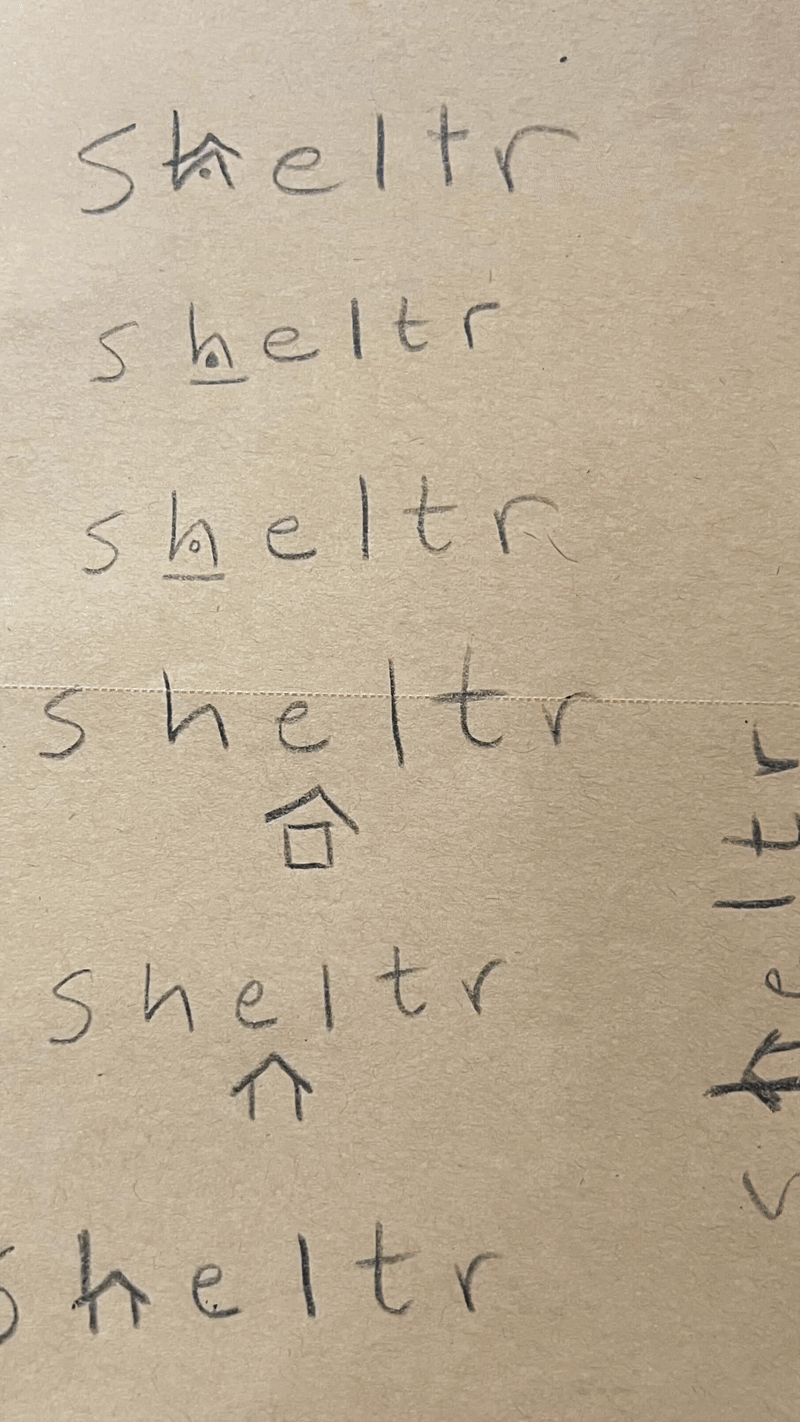 sheltr
sheltr
sheltr
sheltr
sheltr
sheltr
sheltr